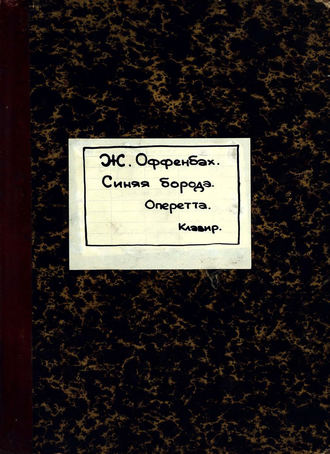 Ж. Оффенбах.
Синяя борода.
Оперетта.
Клавир.